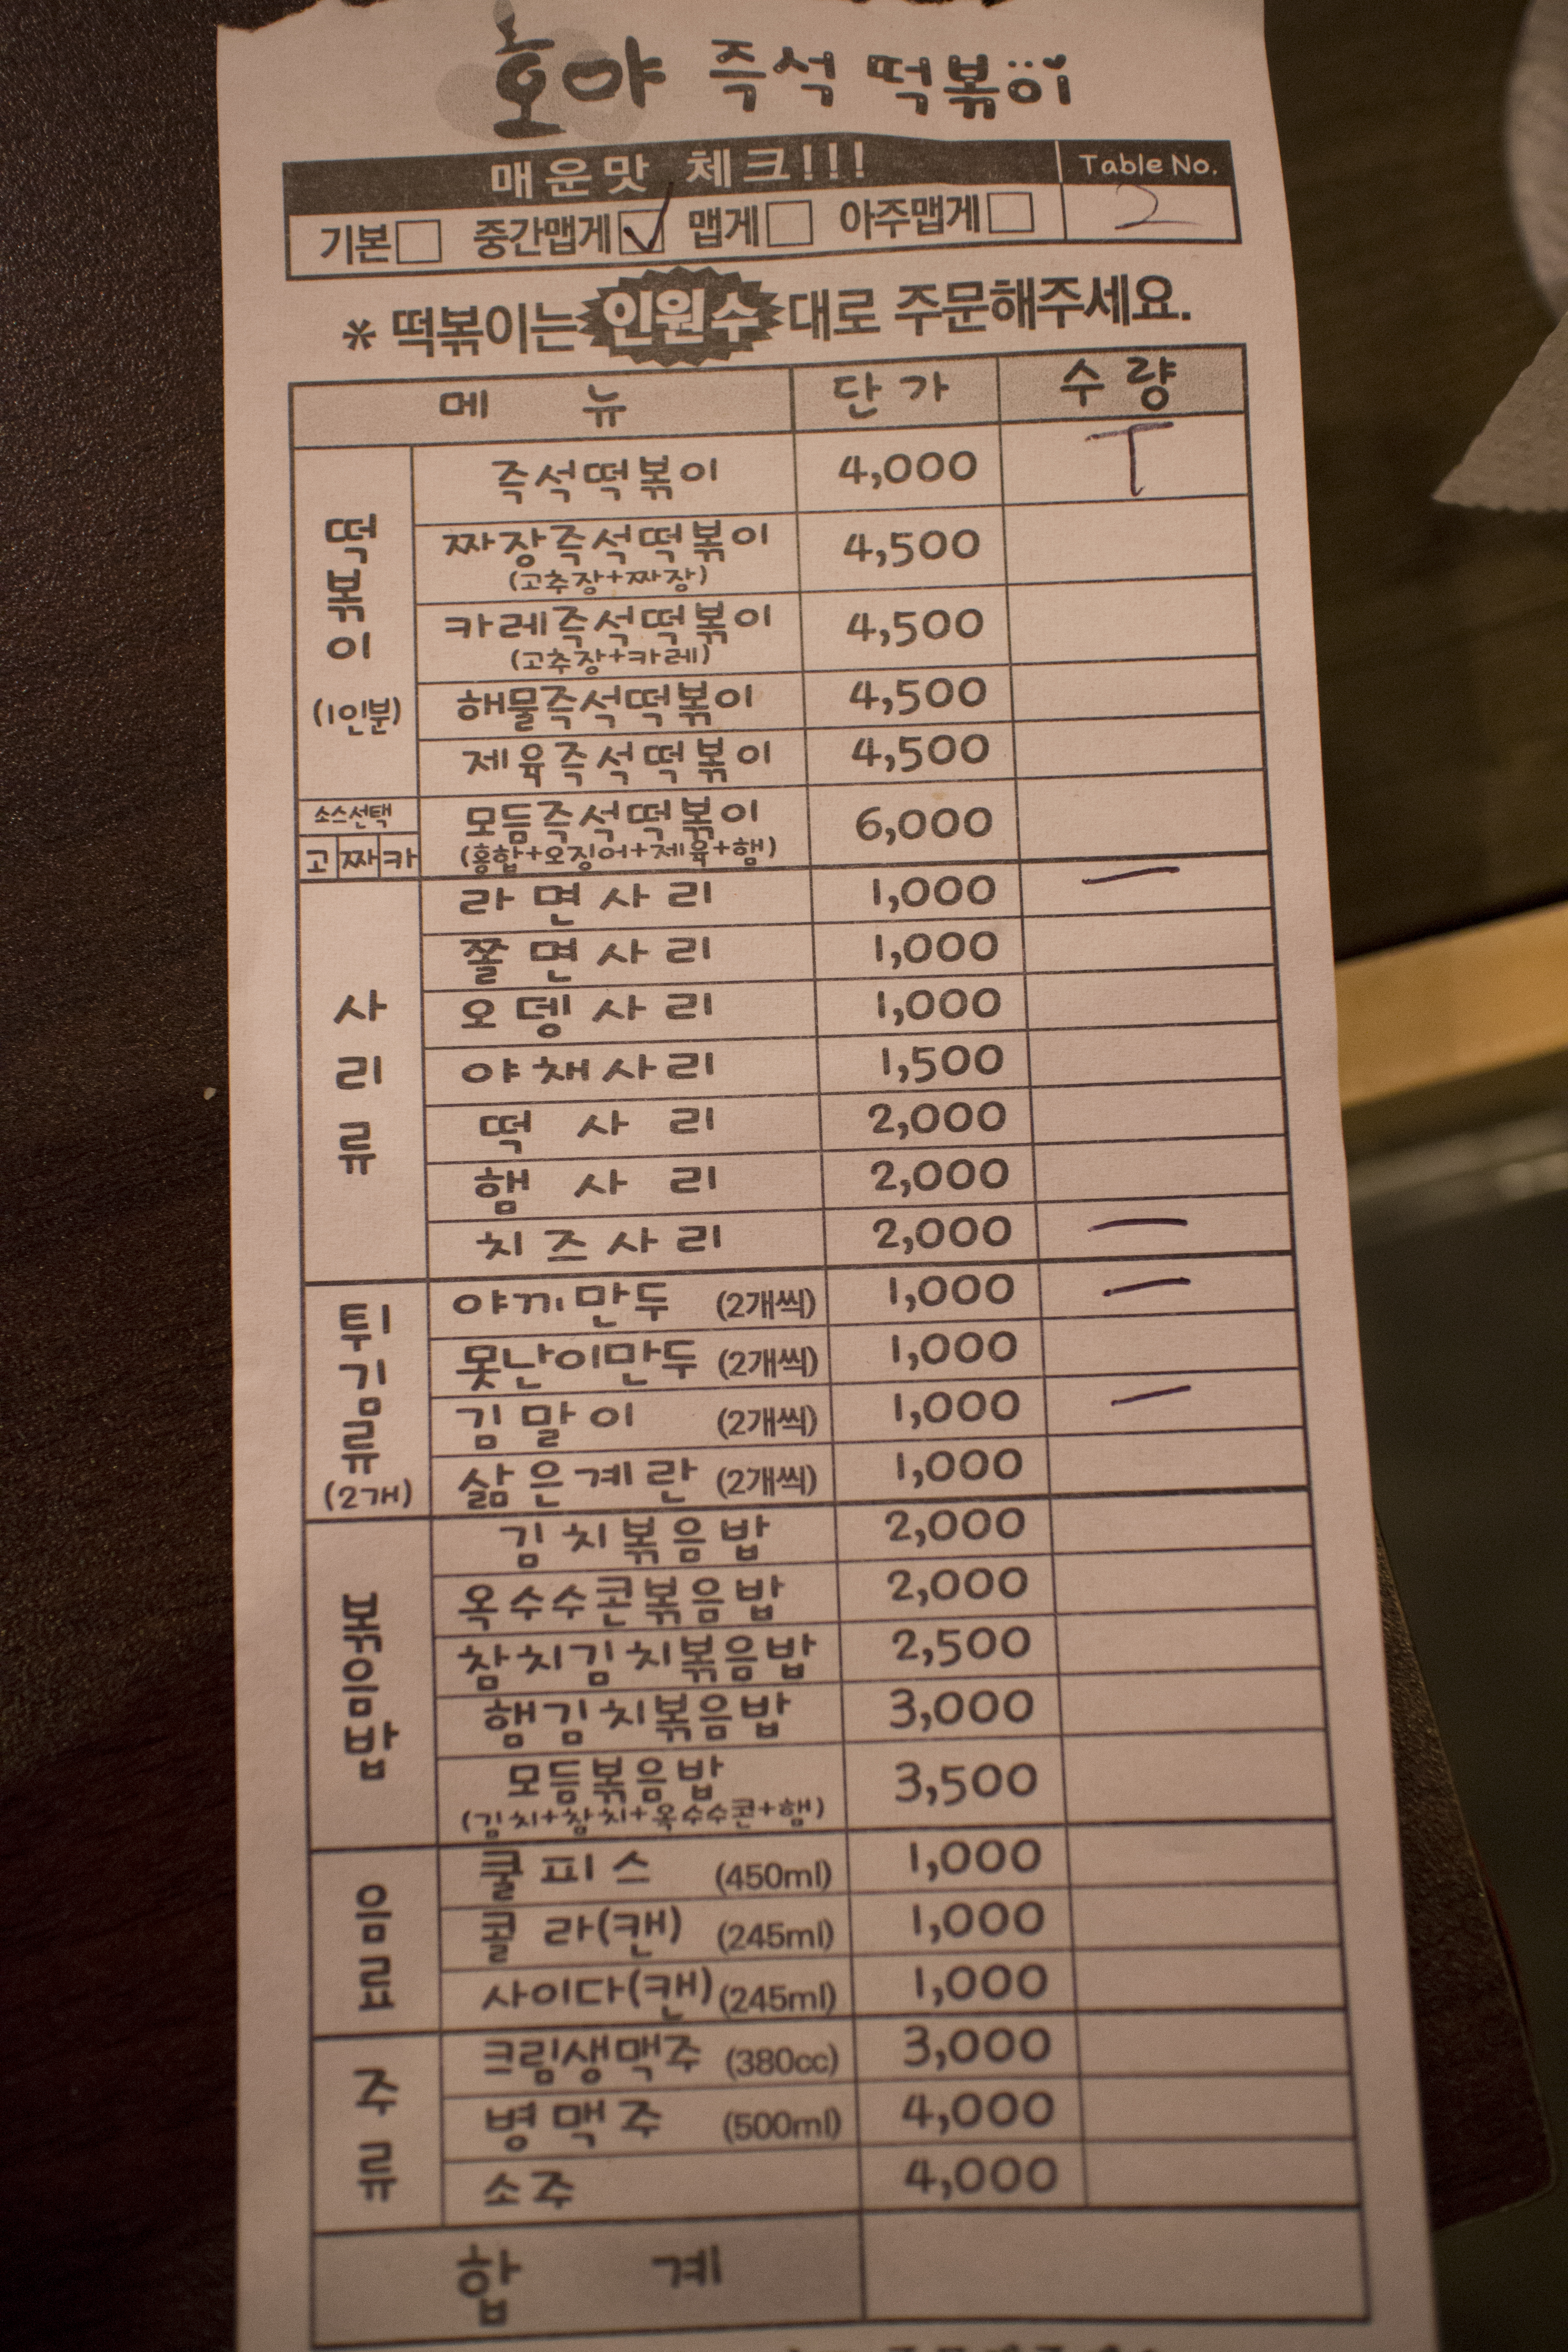 호야 즉석 떡볶이
매운맛 체크!!! Table No.
기본 □ 중간맵게 ☑ 맵게 □ 아주맵게 □ 2
* 떡볶이는 인원수 대로 주문해주세요.
메 뉴 단가 수량
떡볶이 (1인분)
즉석떡볶이 4,000 T
짜장즉석떡볶이 4,500
(고추장+짜장)
카레즉석떡볶이 4,500
(고추장+카레)
해물즉석떡볶이 4,500
제육즉석떡볶이 4,500
소스선택
고 짜 카
모듬즉석떡볶이 6,000
(홍합+오징어+제육+햄)
사리류
라면사리 1,000 一
쫄면사리 1,000
오뎅사리 1,000
야채사리 1,500
떡 사 리 2,000
햄 사 리 2,000
치즈사리 2,000 一
튀김류 (2개)
야끼만두 (2개씩) 1,000 一
못난이만두 (2개씩) 1,000
김말이 (2개씩) 1,000 一
삶은계란 (2개씩) 1,000
볶음밥
김치볶음밥 2,000
옥수수콘볶음밥 2,000
참치김치볶음밥 2,500
햄김치볶음밥 3,000
모듬볶음밥 3,500
(김치+참치+옥수수콘+햄)
음료
쿨피스 (450ml) 1,000
콜 라(캔) (245ml) 1,000
사이다(캔) (245ml) 1,000
주류
크림생맥주 (380cc) 3,000
병맥주 (500ml) 4,000
소주 4,000
합 계